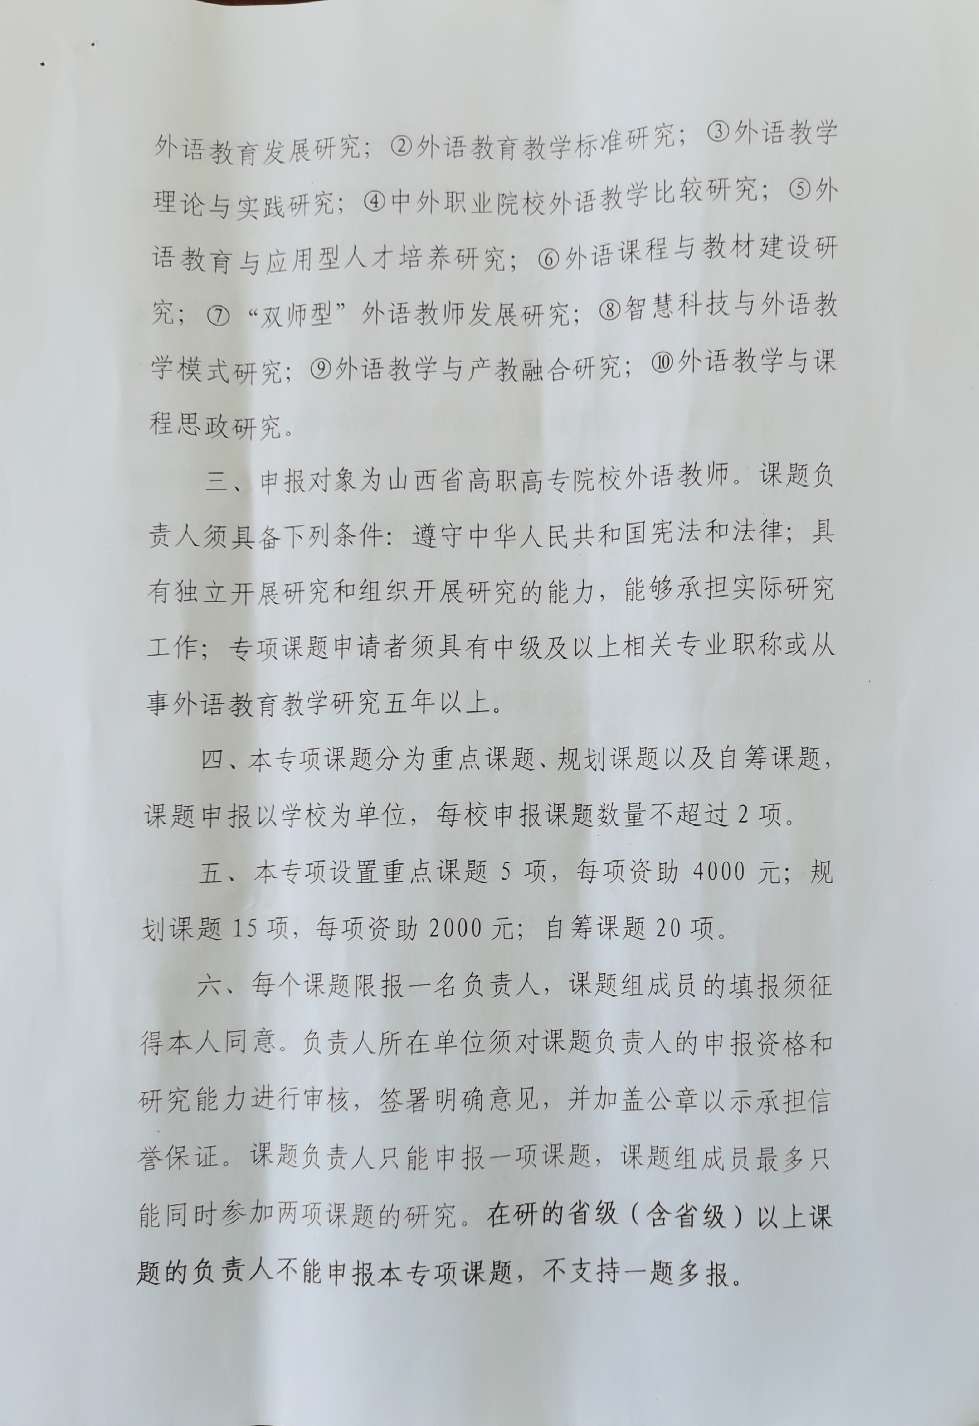 外语教育发展研究；②外语教育教学标准研究；③外语教学
理论与实践研究；④中外职业院校外语教学比较研究；⑤外
语教育与应用型人才培养研究；⑥外语课程与教材建设研
究；⑦“双师型”外语教师发展研究；⑧智慧科技与外语教
学模式研究；⑨外语教学与产教融合研究；⑩外语教学与课
程思政研究。
三、申报对象为山西省高职高专院校外语教师。课题负
责人须具备下列条件：遵守中华人民共和国宪法和法律；具
有独立开展研究和组织开展研究的能力，能够承担实际研究
工作；专项课题申请者须具有中级及以上相关专业职称或从
事外语教育教学研究五年以上。
四、本专项课题分为重点课题、规划课题以及自筹课题，
课题申报以学校为单位，每校申报课题数量不超过2项。
五、本专项设置重点课题5项，每项资助4000元；规
划课题15项，每项资助2000元；自筹课题20项。
六、每个课题限报一名负责人，课题组成员的填报须征
得本人同意。负责人所在单位须对课题负责人的申报资格和
研究能力进行审核，签署明确意见，并加盖公章以示承担信
誉保证。课题负责人只能申报一项课题，课题组成员最多只
能同时参加两项课题的研究。在研的省级（含省级）以上课
题的负责人不能申报本专项课题，不支持一题多报。